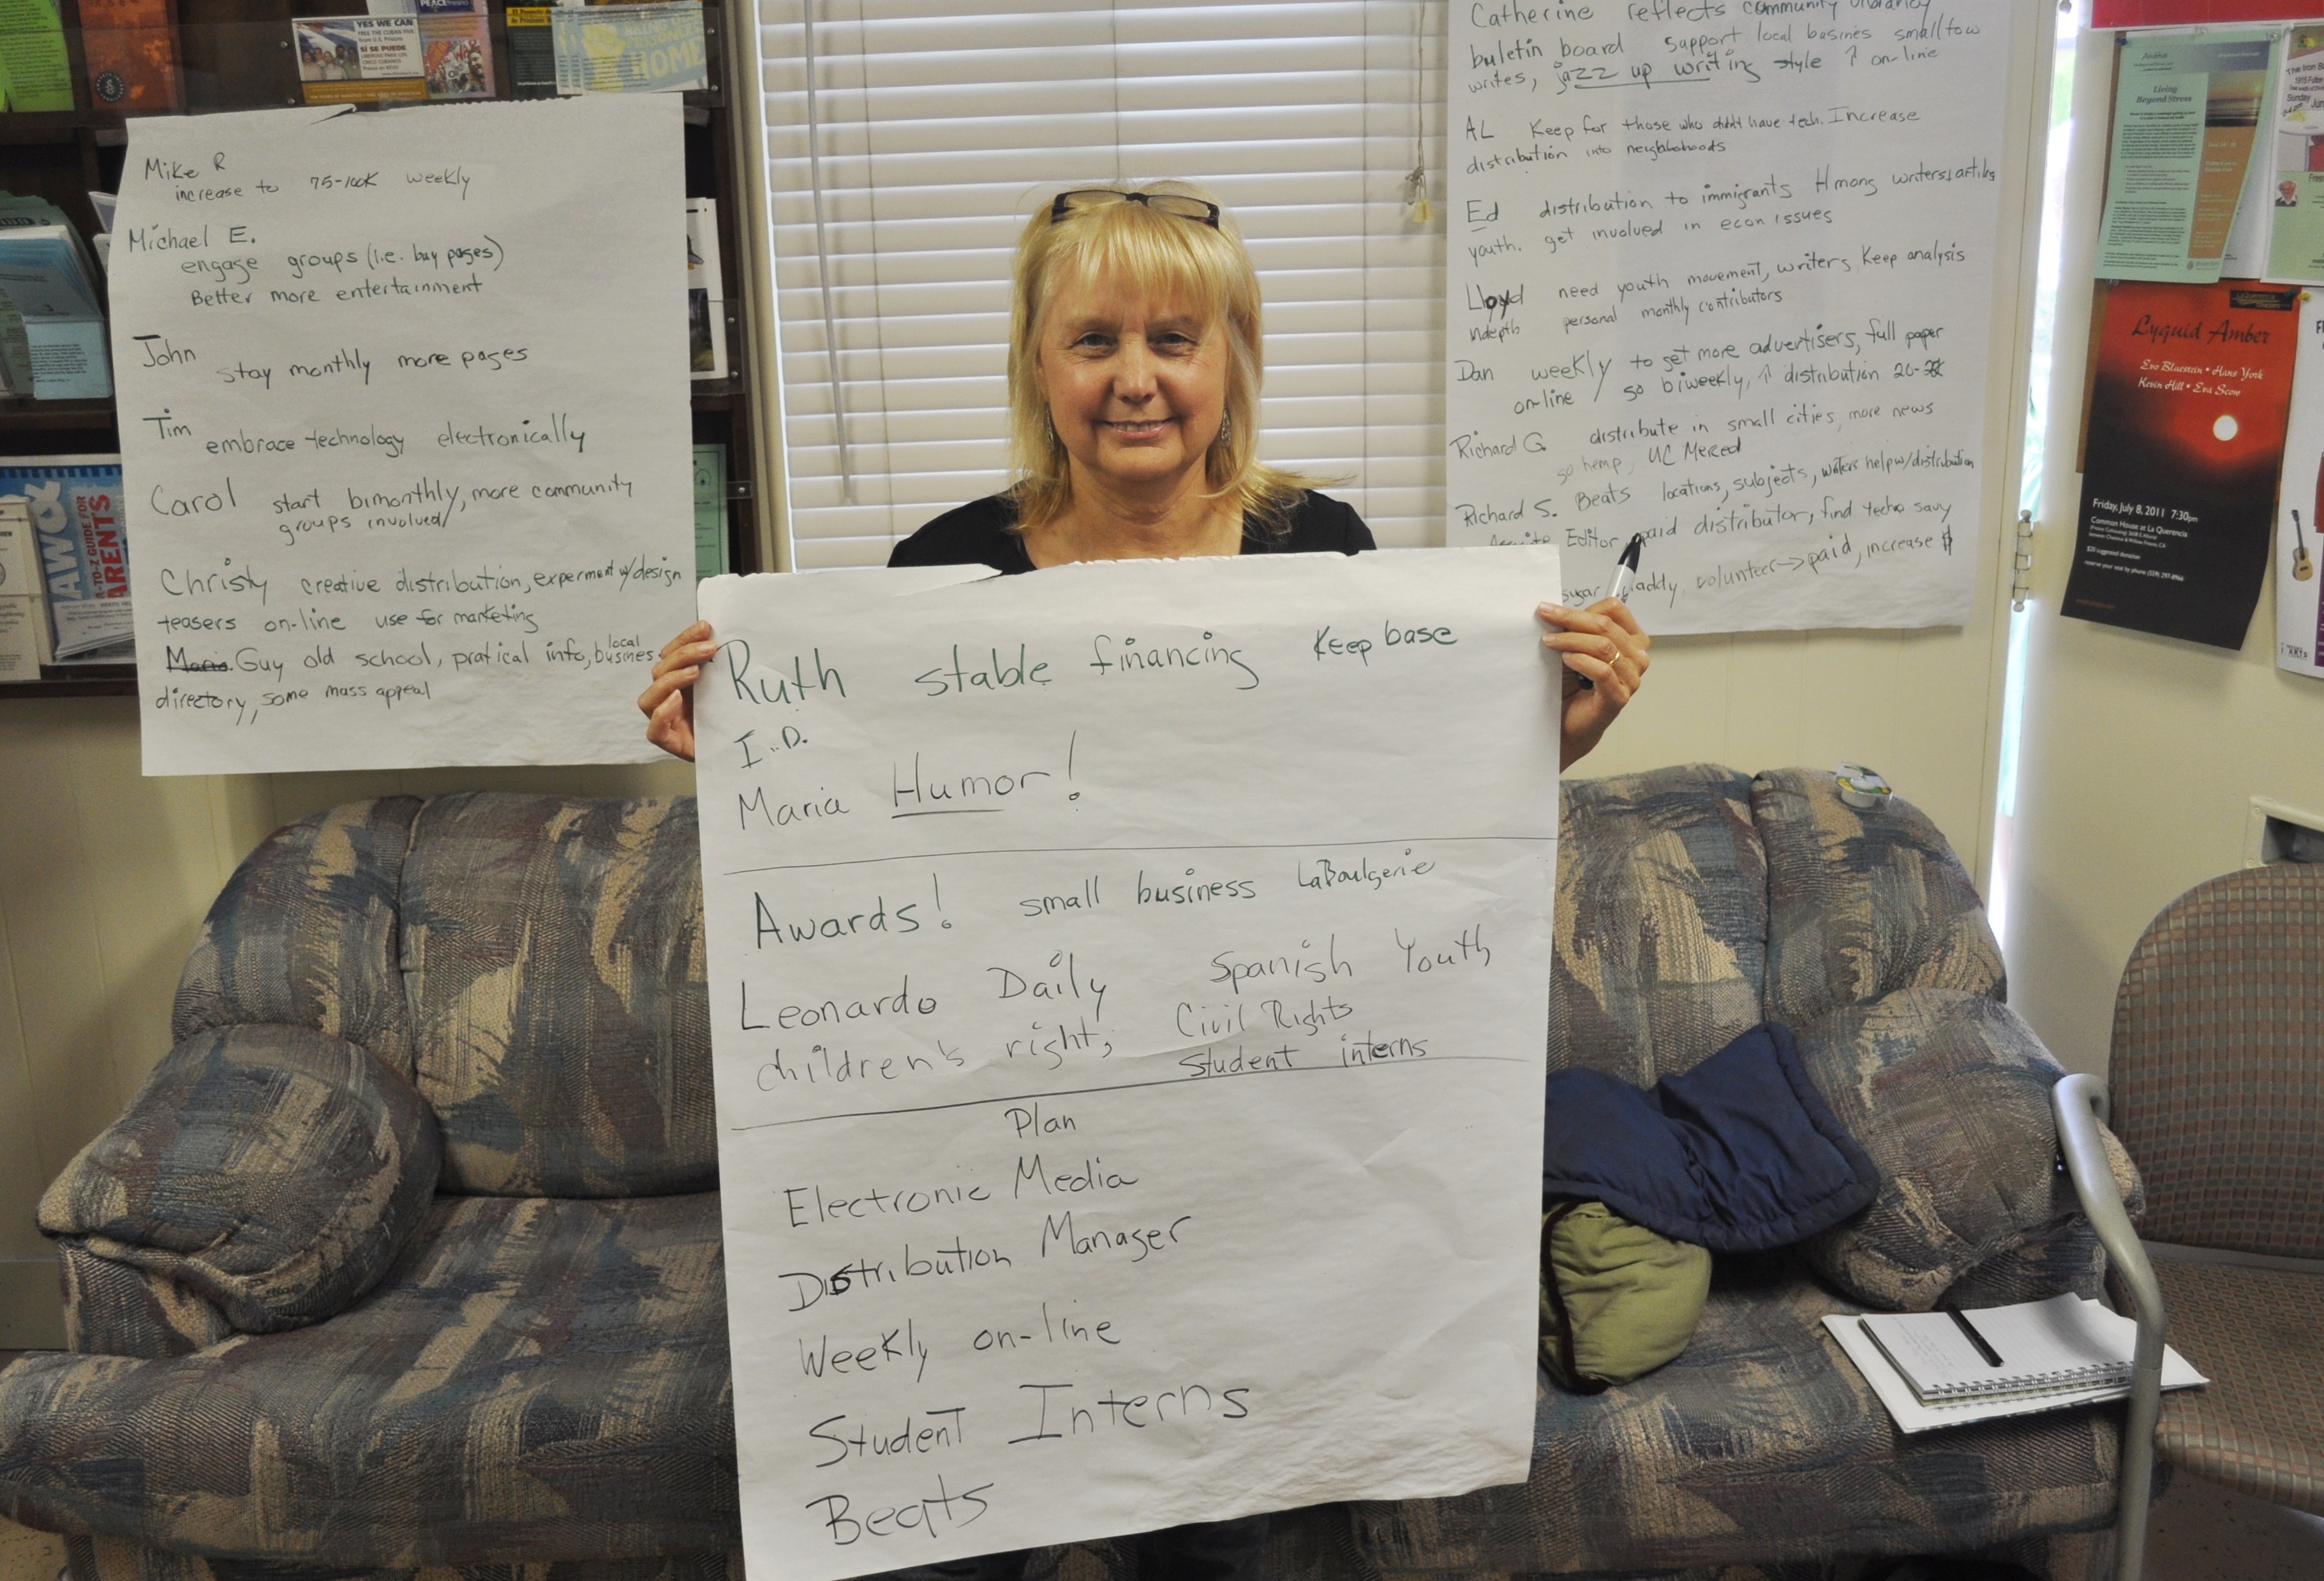 YES WE CAN
FREE THE CUBAN FIVE
from U.S. Prisons
SÍ SE PUEDE
CINCO CUBANOS
HOME
Mike R
increase to 75-100K weekly
Michael E.
engage groups (i.e. buy pages)
Better more entertainment
John
stay monthly more pages
Tim
embrace technology electronically
Carol start bimonthly, more community
groups involved
Christy creative distribution, experment w/design
teasers on-line use for marketing
Maria Guy old school, pratical info, local busines
directory, some mass appeal
A-TO-Z GUIDE FOR
PARENTS
Catherine reflects community vibrancy
buletin board support local basines small tow
writes, jazz up writing style ↑ on-line
AL Keep for those who didn't have tech. Increase
distribution into neighborhoods
Ed distribution to immigrants Hmong writers, artiks
youth. get involved in econ issues
Lloyd need youth movement, writers Keep analysis
indepth personal monthly contributors
Dan weekly to get more advertisers, full paper
on-line so biweekly, ↑ distribution 20-
Richard G. distribute in small cities, more news
so hemp, UC Merced
Richard S. Beats locations, subjects, writers help w/distribution
Editor paid distributor, find techo savy
sugar daddy volunteer → paid, increase $
Ruth stable financing Keep base
I.D.
Maria Humor!
Awards! small business LaBoulgerie
Leonardo Daily Spanish Youth
children's right, Civil Rights
Student interns
Plan
Electronic Media
Distribution Manager
Weekly on-line
Student Interns
Beats
Living
Beyond Stress
Lyquid Amber
Evo Bluestein • Hans York
Kevin Hill • Eva Scow
Friday, July 8, 2011 7:30pm
Common House at La Querencia
$20 suggested donation
reserve your seat by phone (559) 297-8966
The Iron B
Sunday